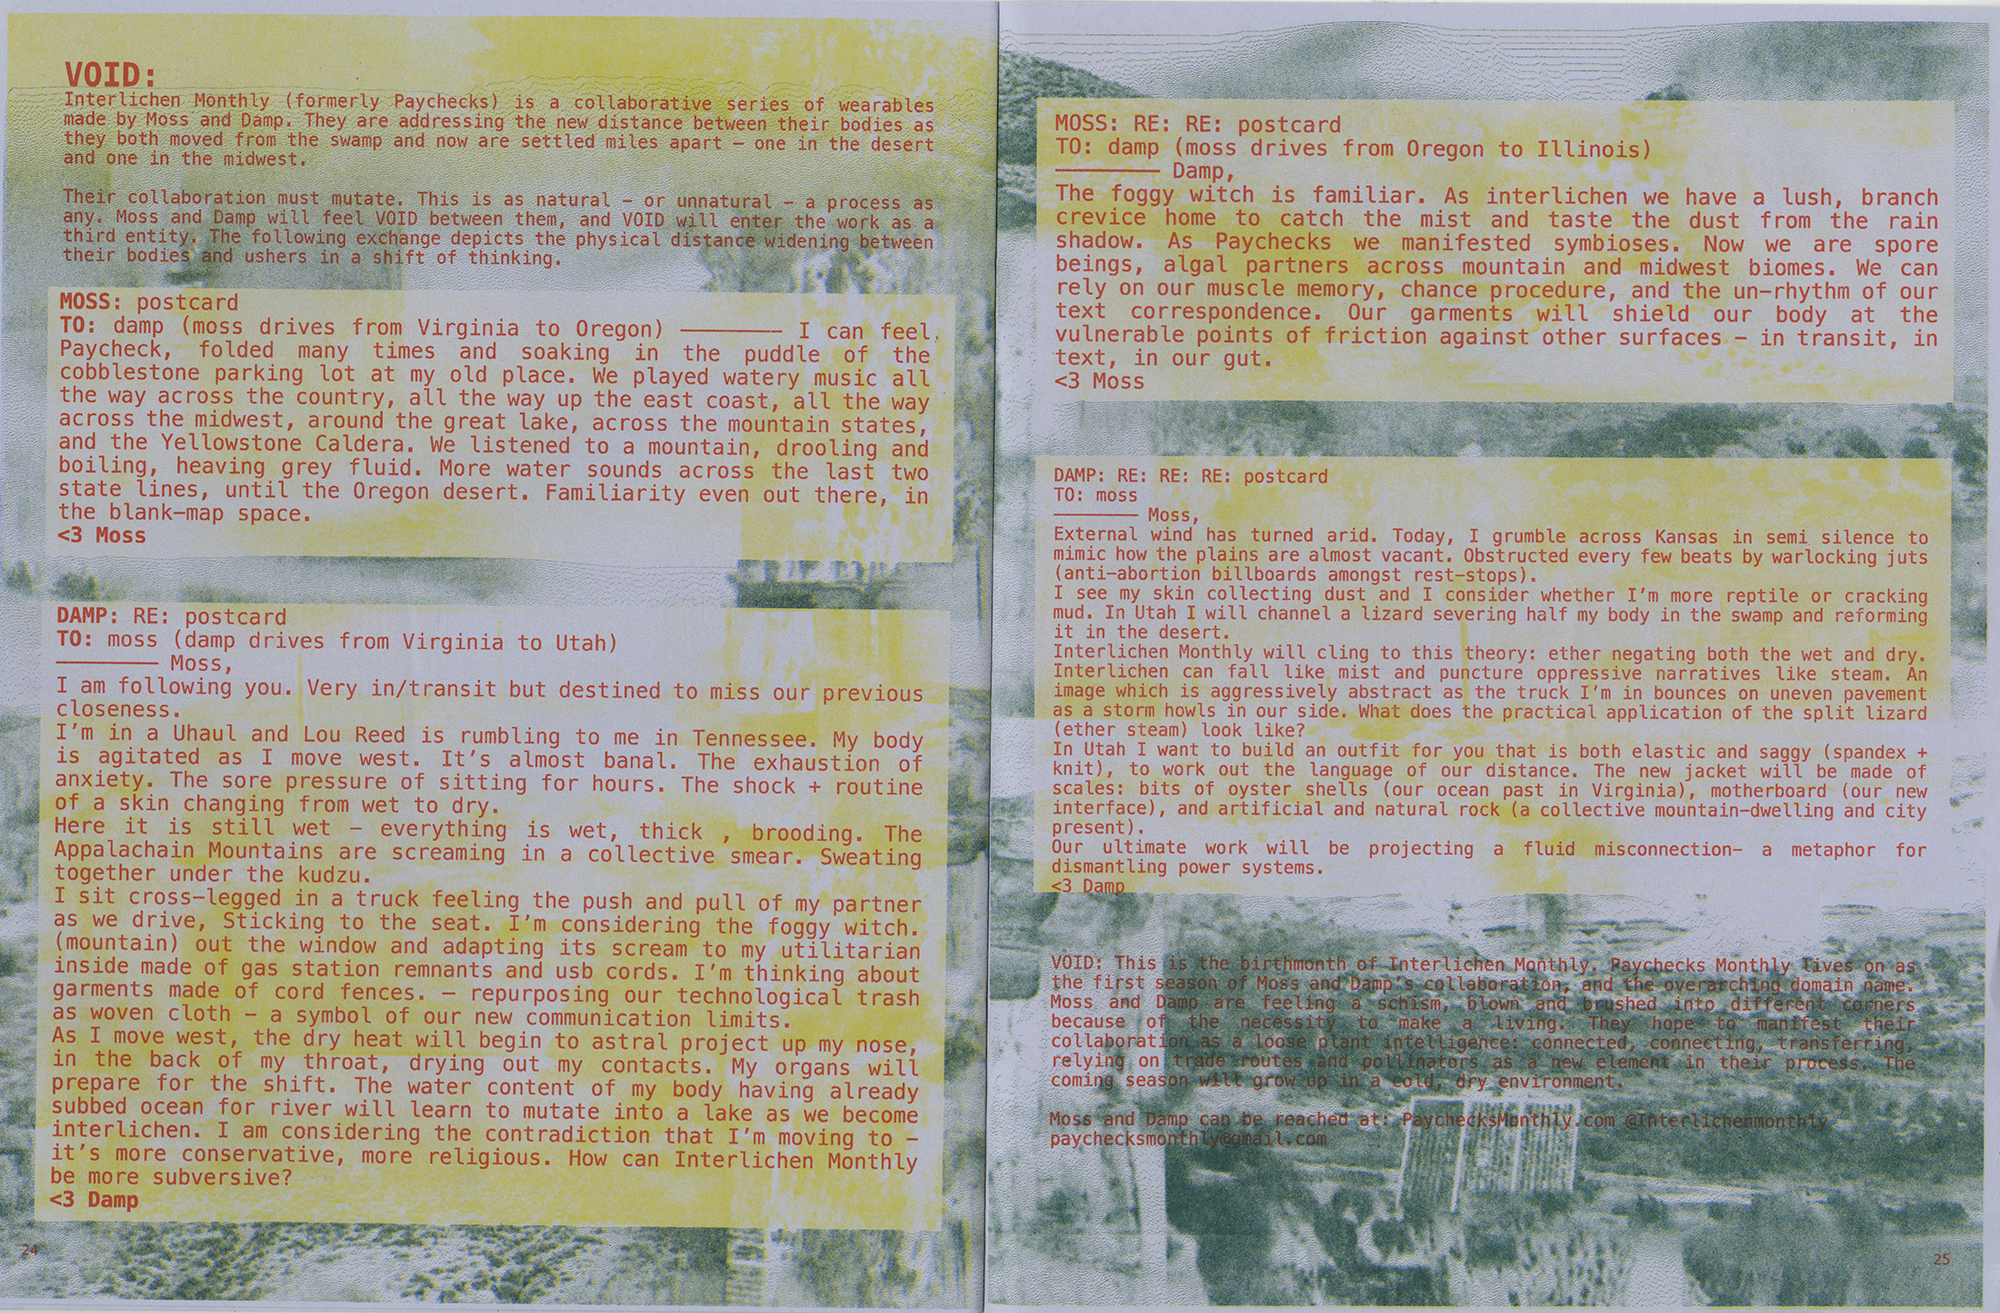 VOID:
Interlichen Monthly (formerly Paychecks) is a collaborative series of wearables
made by Moss and Damp. They are addressing the new distance between their bodies as
they both moved from the swamp and now are settled miles apart – one in the desert
and one in the midwest.
Their collaboration must mutate. This is as natural – or unnatural – a process as
any. Moss and Damp will feel VOID between them, and VOID will enter the work as a
third entity. The following exchange depicts the physical distance widening between
their bodies and ushers in a shift of thinking.
MOSS: postcard
TO: damp (moss drives from Virginia to Oregon) ———— I can feel
Paycheck, folded many times and soaking in the puddle of the
cobblestone parking lot at my old place. We played watery music all
the way across the country, all the way up the east coast, all the way
across the midwest, around the great lake, across the mountain states,
and the Yellowstone Caldera. We listened to a mountain, drooling and
boiling, heaving grey fluid. More water sounds across the last two
state lines, until the Oregon desert. Familiarity even out there, in
the blank–map space.
<3 Moss
DAMP: RE: postcard
TO: moss (damp drives from Virginia to Utah)
———— Moss,
I am following you. Very in/transit but destined to miss our previous
closeness.
I'm in a Uhaul and Lou Reed is rumbling to me in Tennessee. My body
is agitated as I move west. It's almost banal. The exhaustion of
anxiety. The sore pressure of sitting for hours. The shock + routine
of a skin changing from wet to dry.
Here it is still wet – everything is wet, thick , brooding. The
Appalachain Mountains are screaming in a collective smear. Sweating
together under the kudzu.
I sit cross–legged in a truck feeling the push and pull of my partner
as we drive, Sticking to the seat. I'm considering the foggy witch.
(mountain) out the window and adapting its scream to my utilitarian
inside made of gas station remnants and usb cords. I'm thinking about
garments made of cord fences. – repurposing our technological trash
as woven cloth – a symbol of our new communication limits.
As I move west, the dry heat will begin to astral project up my nose,
in the back of my throat, drying out my contacts. My organs will
prepare for the shift. The water content of my body having already
subbed ocean for river will learn to mutate into a lake as we become
interlichen. I am considering the contradiction that I'm moving to –
it's more conservative, more religious. How can Interlichen Monthly
be more subversive?
<3 Damp
24
MOSS: RE: RE: postcard
TO: damp (moss drives from Oregon to Illinois)
———— Damp,
The foggy witch is familiar. As interlichen we have a lush, branch
crevice home to catch the mist and taste the dust from the rain
shadow. As Paychecks we manifested symbioses. Now we are spore
beings, algal partners across mountain and midwest biomes. We can
rely on our muscle memory, chance procedure, and the un–rhythm of our
text correspondence. Our garments will shield our body at the
vulnerable points of friction against other surfaces – in transit, in
text, in our gut.
<3 Moss
DAMP: RE: RE: RE: postcard
TO: moss
———— Moss,
External wind has turned arid. Today, I grumble across Kansas in semi silence to
mimic how the plains are almost vacant. Obstructed every few beats by warlocking juts
(anti–abortion billboards amongst rest–stops).
I see my skin collecting dust and I consider whether I'm more reptile or cracking
mud. In Utah I will channel a lizard severing half my body in the swamp and reforming
it in the desert.
Interlichen Monthly will cling to this theory: ether negating both the wet and dry.
Interlichen can fall like mist and puncture oppressive narratives like steam. An
image which is aggressively abstract as the truck I'm in bounces on uneven pavement
as a storm howls in our side. What does the practical application of the split lizard
(ether steam) look like?
In Utah I want to build an outfit for you that is both elastic and saggy (spandex +
knit), to work out the language of our distance. The new jacket will be made of
scales: bits of oyster shells (our ocean past in Virginia), motherboard (our new
interface), and artificial and natural rock (a collective mountain–dwelling and city
present).
Our ultimate work will be projecting a fluid misconnection– a metaphor for
dismantling power systems.
<3 Damp
VOID: This is the birthmonth of Interlichen Monthly. Paychecks Monthly lives on as
the first season of Moss and Damp's collaboration, and the overarching domain name.
Moss and Damp are feeling a schism, blown and brushed into different corners
because of the necessity to make a living. They hope to manifest their
collaboration as a loose plant intelligence: connected, connecting, transferring,
relying on trade routes and pollinators as a new element in their process. The
coming season will grow up in a cold, dry environment.
Moss and Damp can be reached at: PaychecksMonthly.com @Interlichenmonthly
paychecksmonthly@gmail.com
25